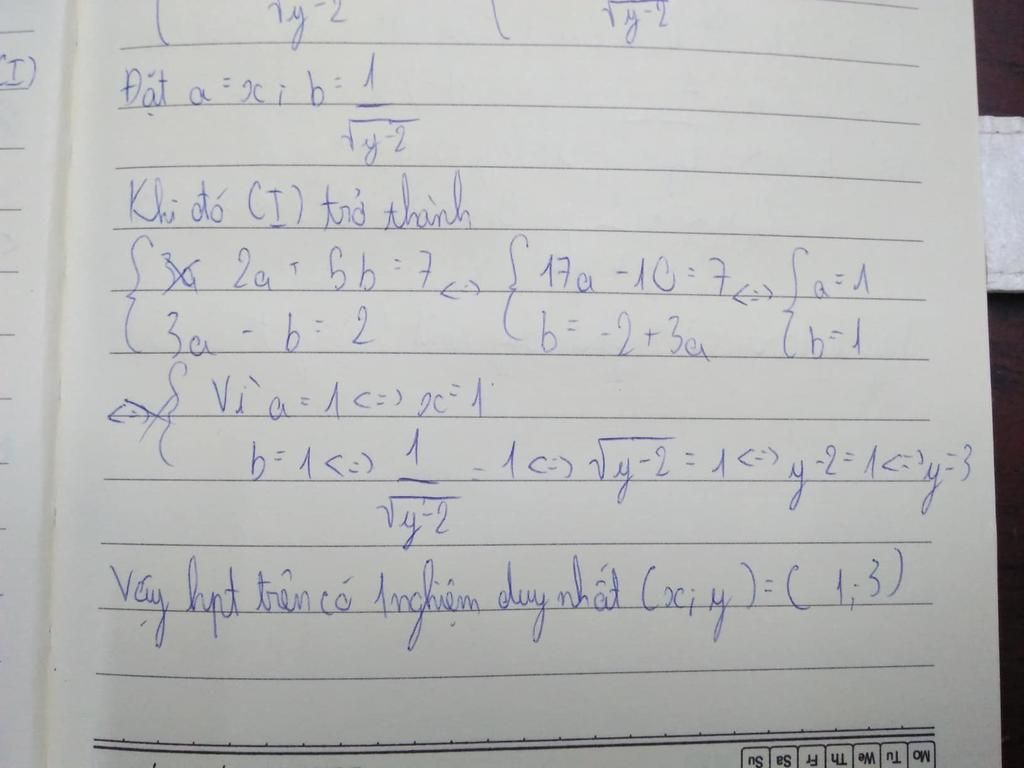 √y-2 √y-2
(I)
Đặt a = x; b = 1/√y-2
Khi đó (I) trở thành
{ 2a + 5b = 7 <=> { 17a - 10 = 7 <=> { a = 1
{ 3a - b = 2 { b = -2 + 3a { b = 1
<=> { Vì a = 1 <=> x = 1
b = 1 <=> 1/√y-2 = 1 <=> √y-2 = 1 <=> y-2 = 1 <=> y = 3
Vậy hpt trên có 1 nghiệm duy nhất (x; y) = ( 1; 3)
Mo Tu We Th Fr Sa Su